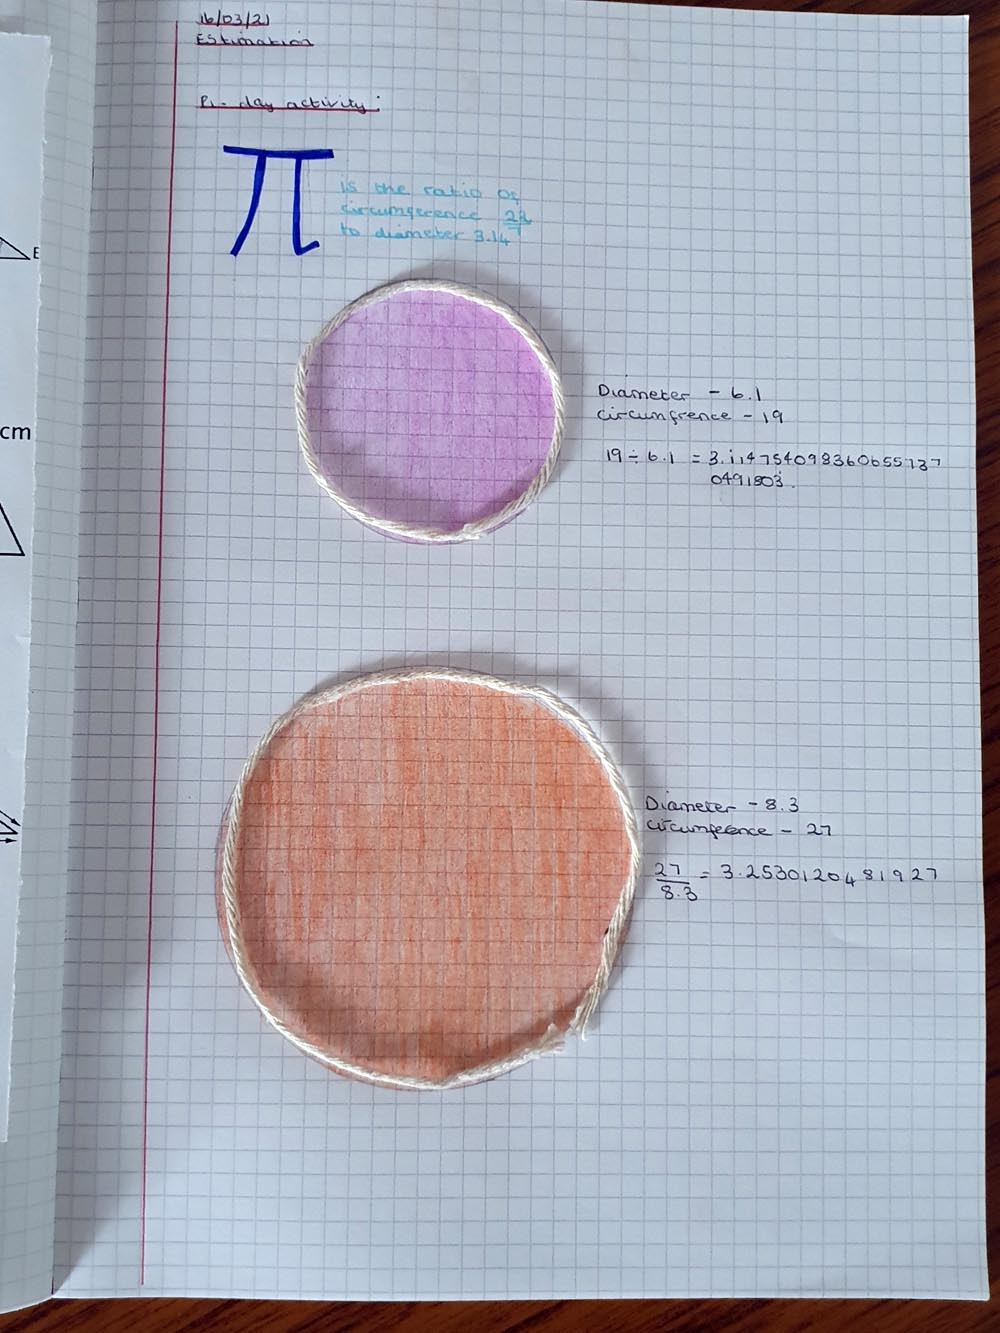 E
cm
16/03/21
Estimation
Pi- day activity:
π is the ratio of
circumference 22/7
to diameter 3.14
Diameter - 6.1
circumfrence - 19
19 ÷ 6.1 = 3.1̇1475409836065573̇7
0491803̇.
Diameter - 8.3
circumfeence - 27
27/8.3 = 3.2530120481927